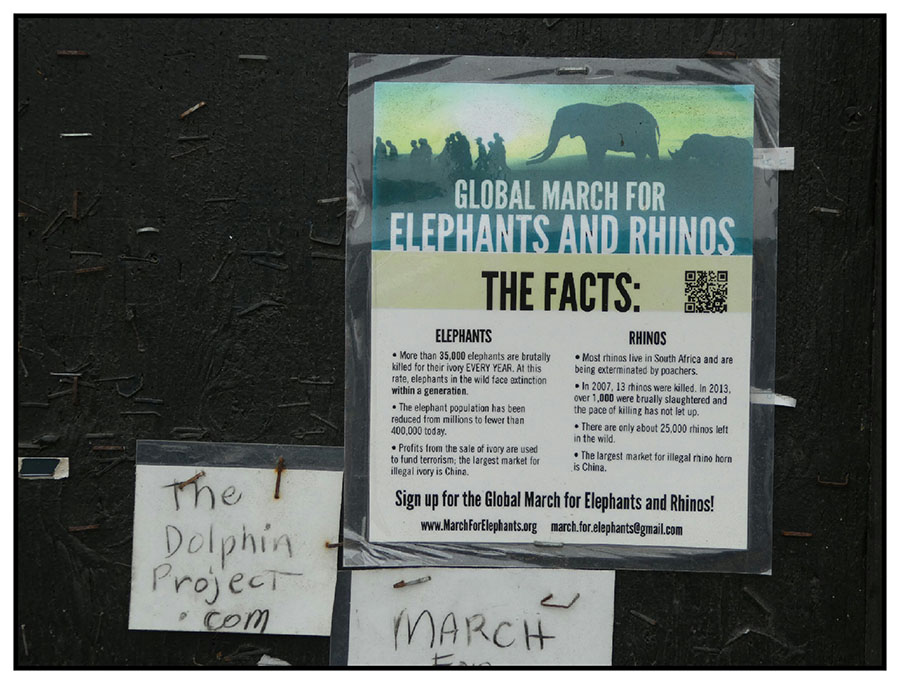 GLOBAL MARCH FOR
ELEPHANTS AND RHINOS
THE FACTS:
ELEPHANTS
• More than 35,000 elephants are brutally
killed for their ivory EVERY YEAR. At this
rate, elephants in the wild face extinction
within a generation.
• The elephant population has been
reduced from millions to fewer than
400,000 today.
• Profits from the sale of ivory are used
to fund terrorism; the largest market for
illegal ivory is China.
RHINOS
• Most rhinos live in South Africa and are
being exterminated by poachers.
• In 2007, 13 rhinos were killed. In 2013,
over 1,000 were brually slaughtered and
the pace of killing has not let up.
• There are only about 25,000 rhinos left
in the wild.
• The largest market for illegal rhino horn
is China.
Sign up for the Global March for Elephants and Rhinos!
www.MarchForElephants.org march.for.elephants@gmail.com
The
Dolphin
Project
.com
MARCH
For